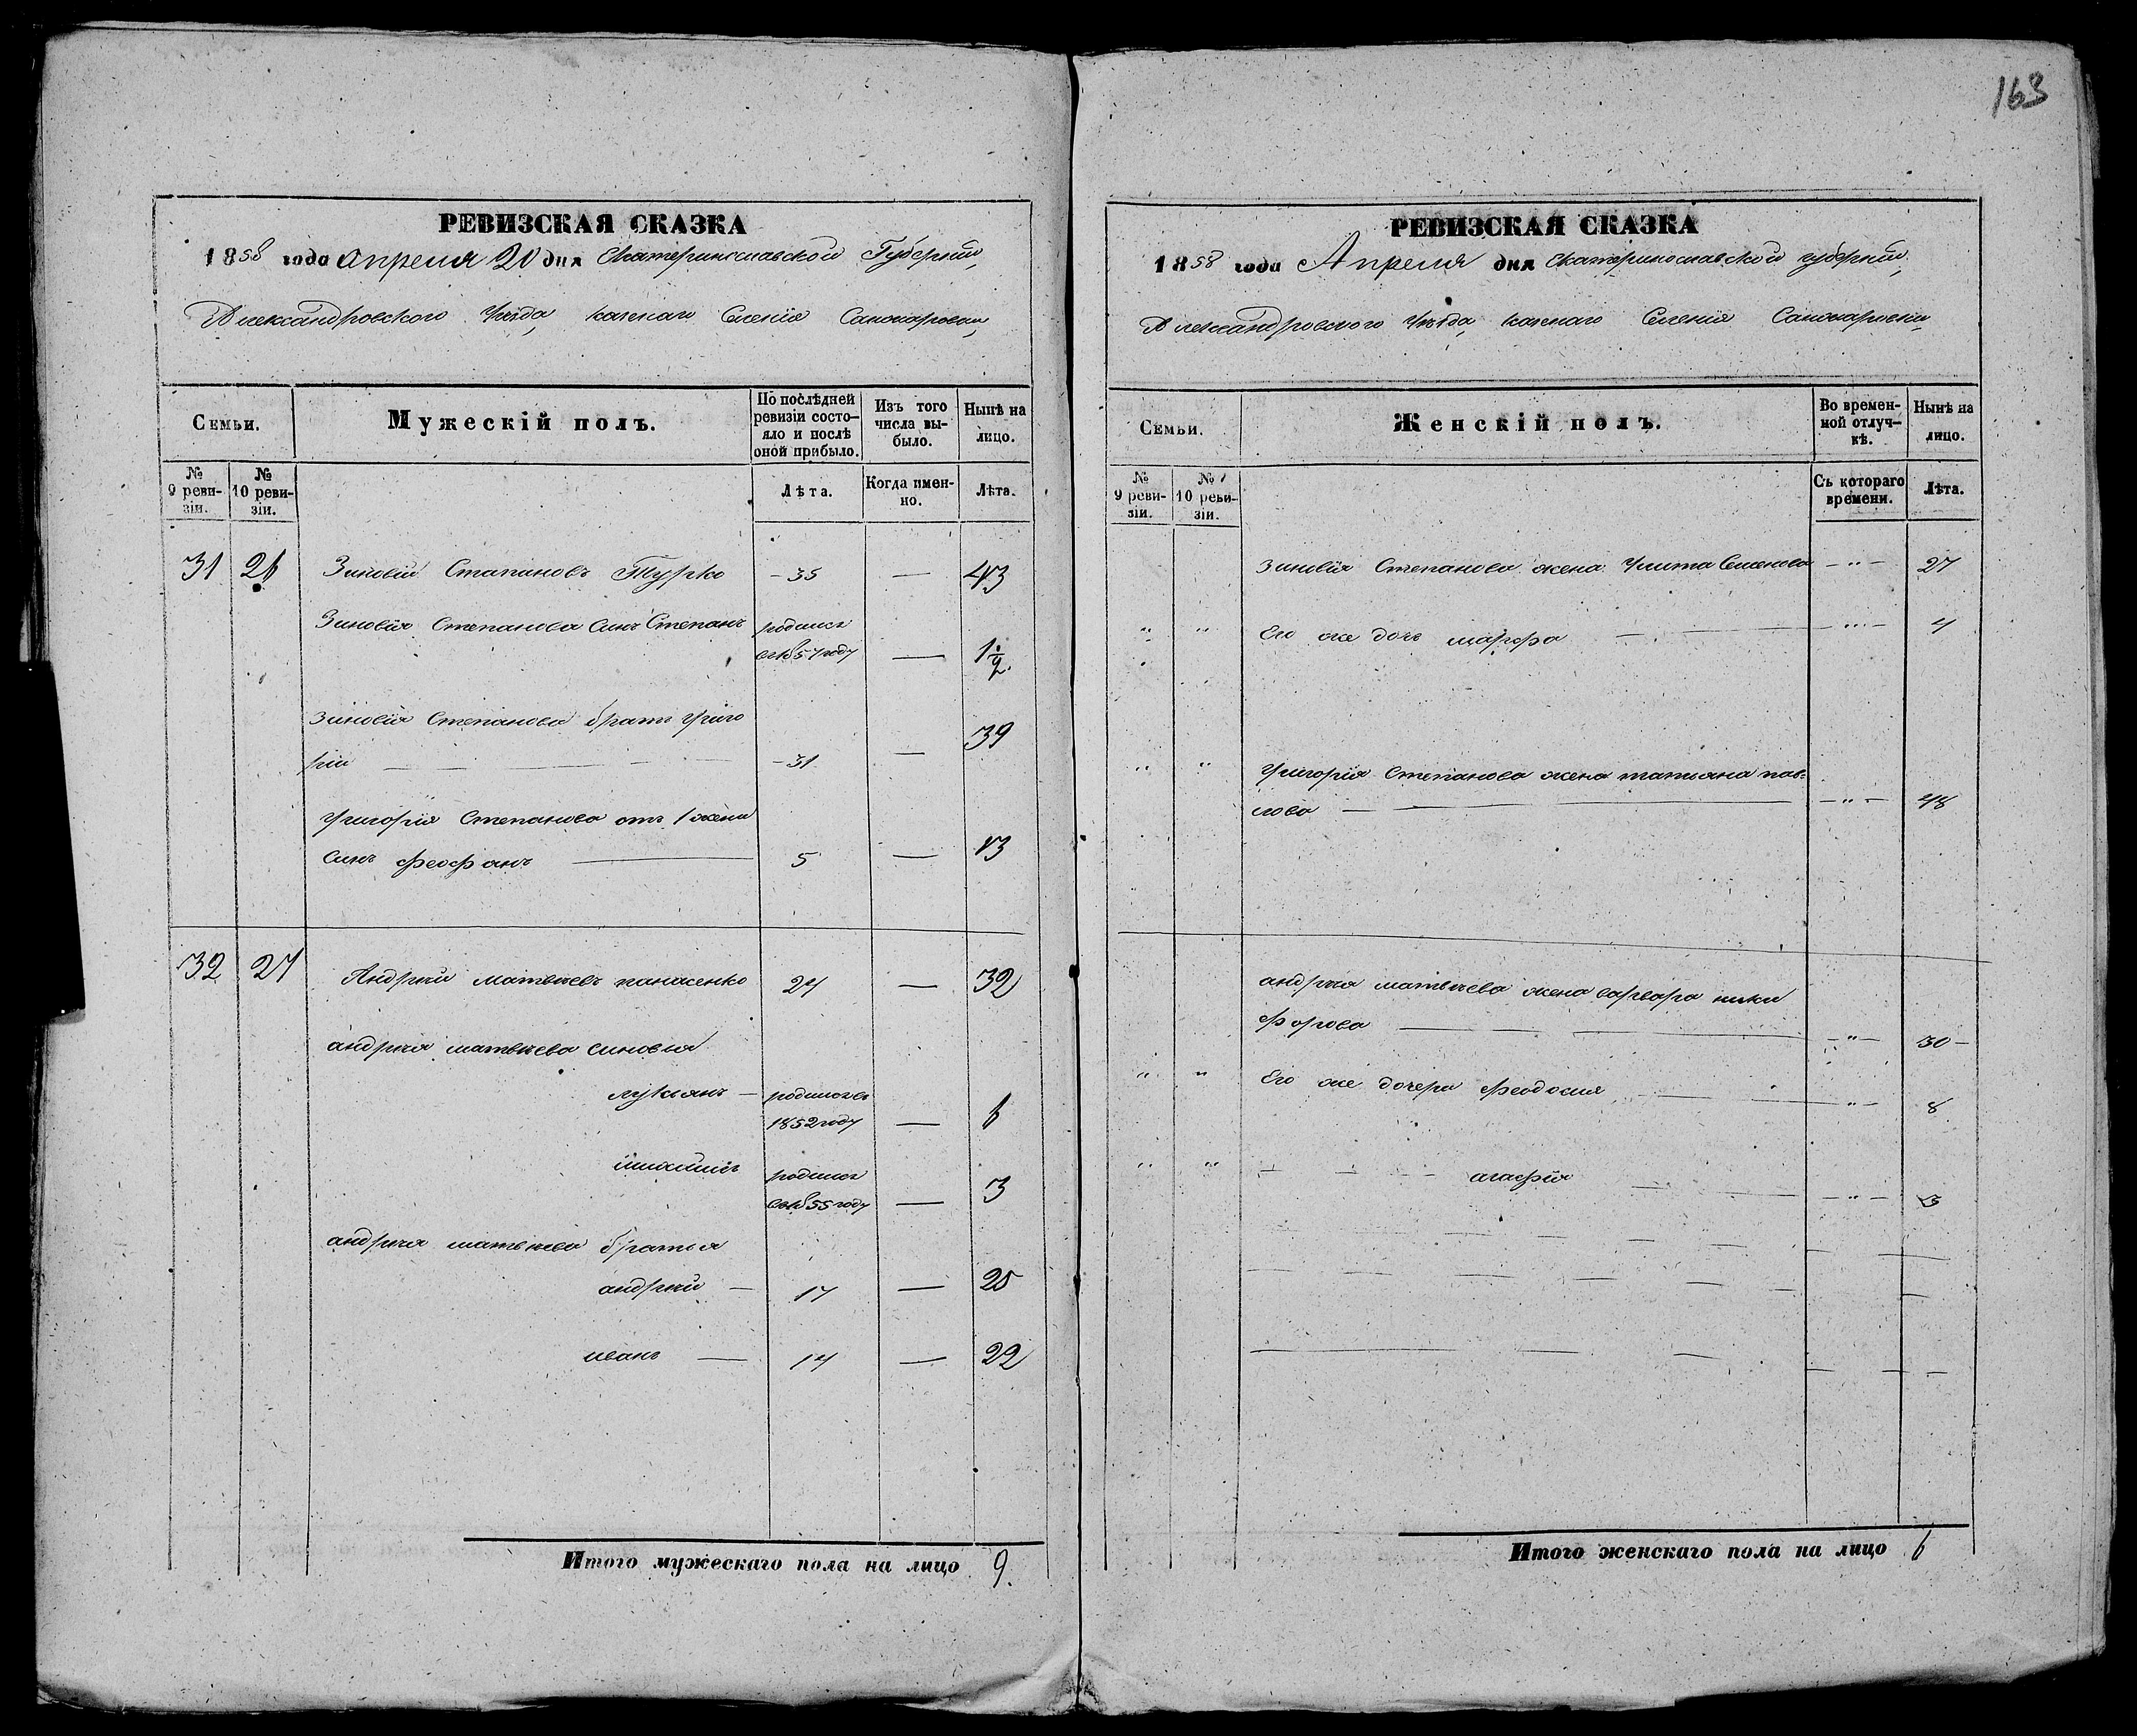 163
РЕВИЗСКАЯ СКАЗКА
1858 года Апреля 20 дня Екатеринославской Губернии,
Александровского Уѣзда, казенаго Селенія
Семьи.
Мужескій полъ.
По послѣдней ревизіи состо-
яло и послѣ
оной прибыло.
Изъ того
числа вы-
было.
Нынѣ на
лицо.
№
9 реви-
зіи.
№
10 реви-
зіи.
Лѣта.
Когда имен-
но.
Лѣта.
31 26 Зиновій Степановъ Турко - 35 — 43
Зиновія Степанова синъ Степанъ родился
въ 1857 году — 1 1/2
Зиновія Степанова братъ григо
рій - 31 — 39
григорія Степанова отъ 1 жени
синъ феофанъ 5 — 13
32 27 Андрѣй матвѣевъ панасенко 24 — 32
андрѣя матвѣева синовья
лукьянъ — родился въ
1852 году — 6
родился
въ 1855 году — 3
андрѣя матвѣева братья
андрѣй — 17 — 25
иванъ — 14 — 22
Итого мужескаго пола на лицо 9.
РЕВИЗСКАЯ СКАЗКА
1858 года Апреля дня Екатеринославской губерніи,
Александровского Уѣзда, казенаго Селенія
Семьи.
Женскій полъ.
Во времен-
ной отлуч-
кѣ.
Нынѣ на
лицо.
№
9 реви-
зіи.
№
10 реви-
зіи.
Съ котораго
времени.
Лѣта.
Зиновія Степанова жена Улита Семенова — " — 27
" " Его же дочь марфа — " — 4
" " григорія Степанова жена татиана пав-
лова — " — 48
андрѣя матвѣева жена варвара ники
форова — " — 30 -
" " Его же дочери феодосия " — 8
" " — — — агафія — " — 3
Итого женскаго пола на лицо 6